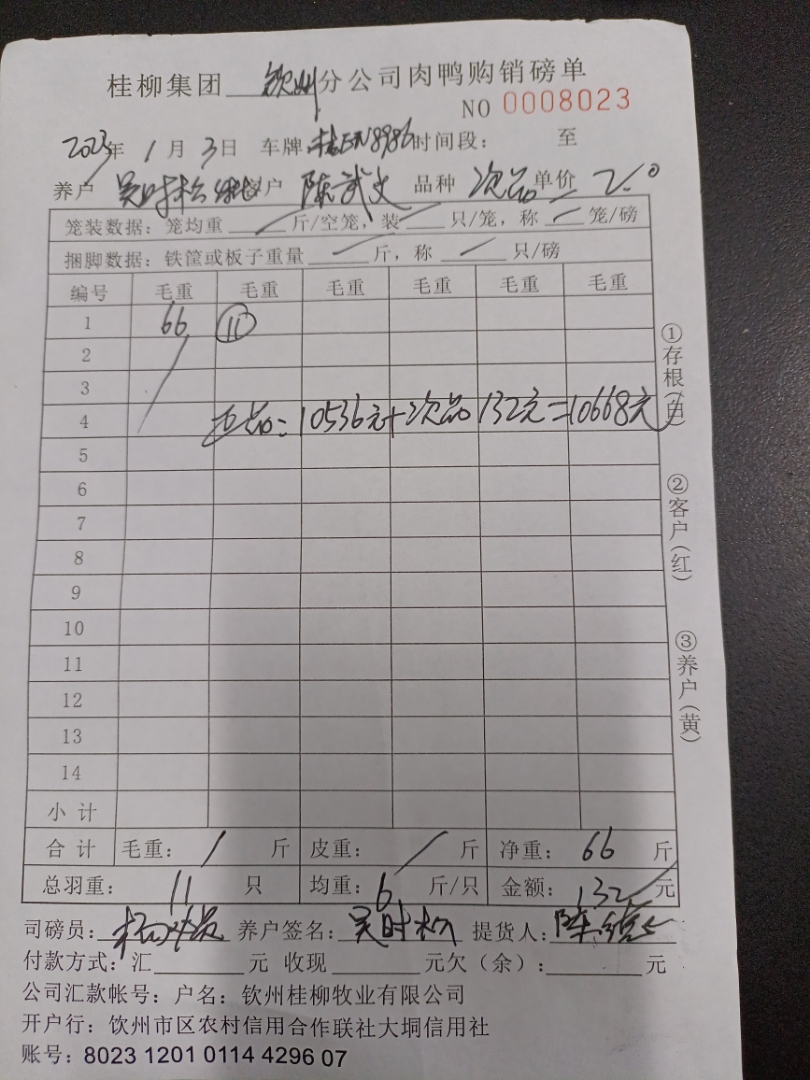 桂柳集团 钦州 分公司肉鸭购销磅单
NO 0008023
2023年 1月 3日 车牌: 时间段: 至
养户 吴时 户 陈武文 品种 次品 单价 2.0
笼装数据: 笼均重 / 斤/空笼, 装 / 只/笼, 称 / 笼/磅
捆脚数据: 铁筐或板子重量 / 斤, 称 / 只/磅
编号 毛重 毛重 毛重 毛重 毛重 毛重
1 66 11
2
3
4 正品=10536元+次品132元=10668元
5
6
7
8
9
10
11
12
13
14
小计
合计 毛重: / 斤 皮重: / 斤 净重: 66 斤
总羽重: 11 只 均重: 6 斤/只 金额: 132 元
司磅员: 养户签名: 吴时 提货人: 陈
付款方式: 汇 元 收现 元欠(余): 元
公司汇款帐号: 户名: 钦州桂柳牧业有限公司
开户行: 钦州市区农村信用合作联社大垌信用社
账号: 8023 1201 0114 4296 07
①存根(白)
②客户(红)
③养户(黄)